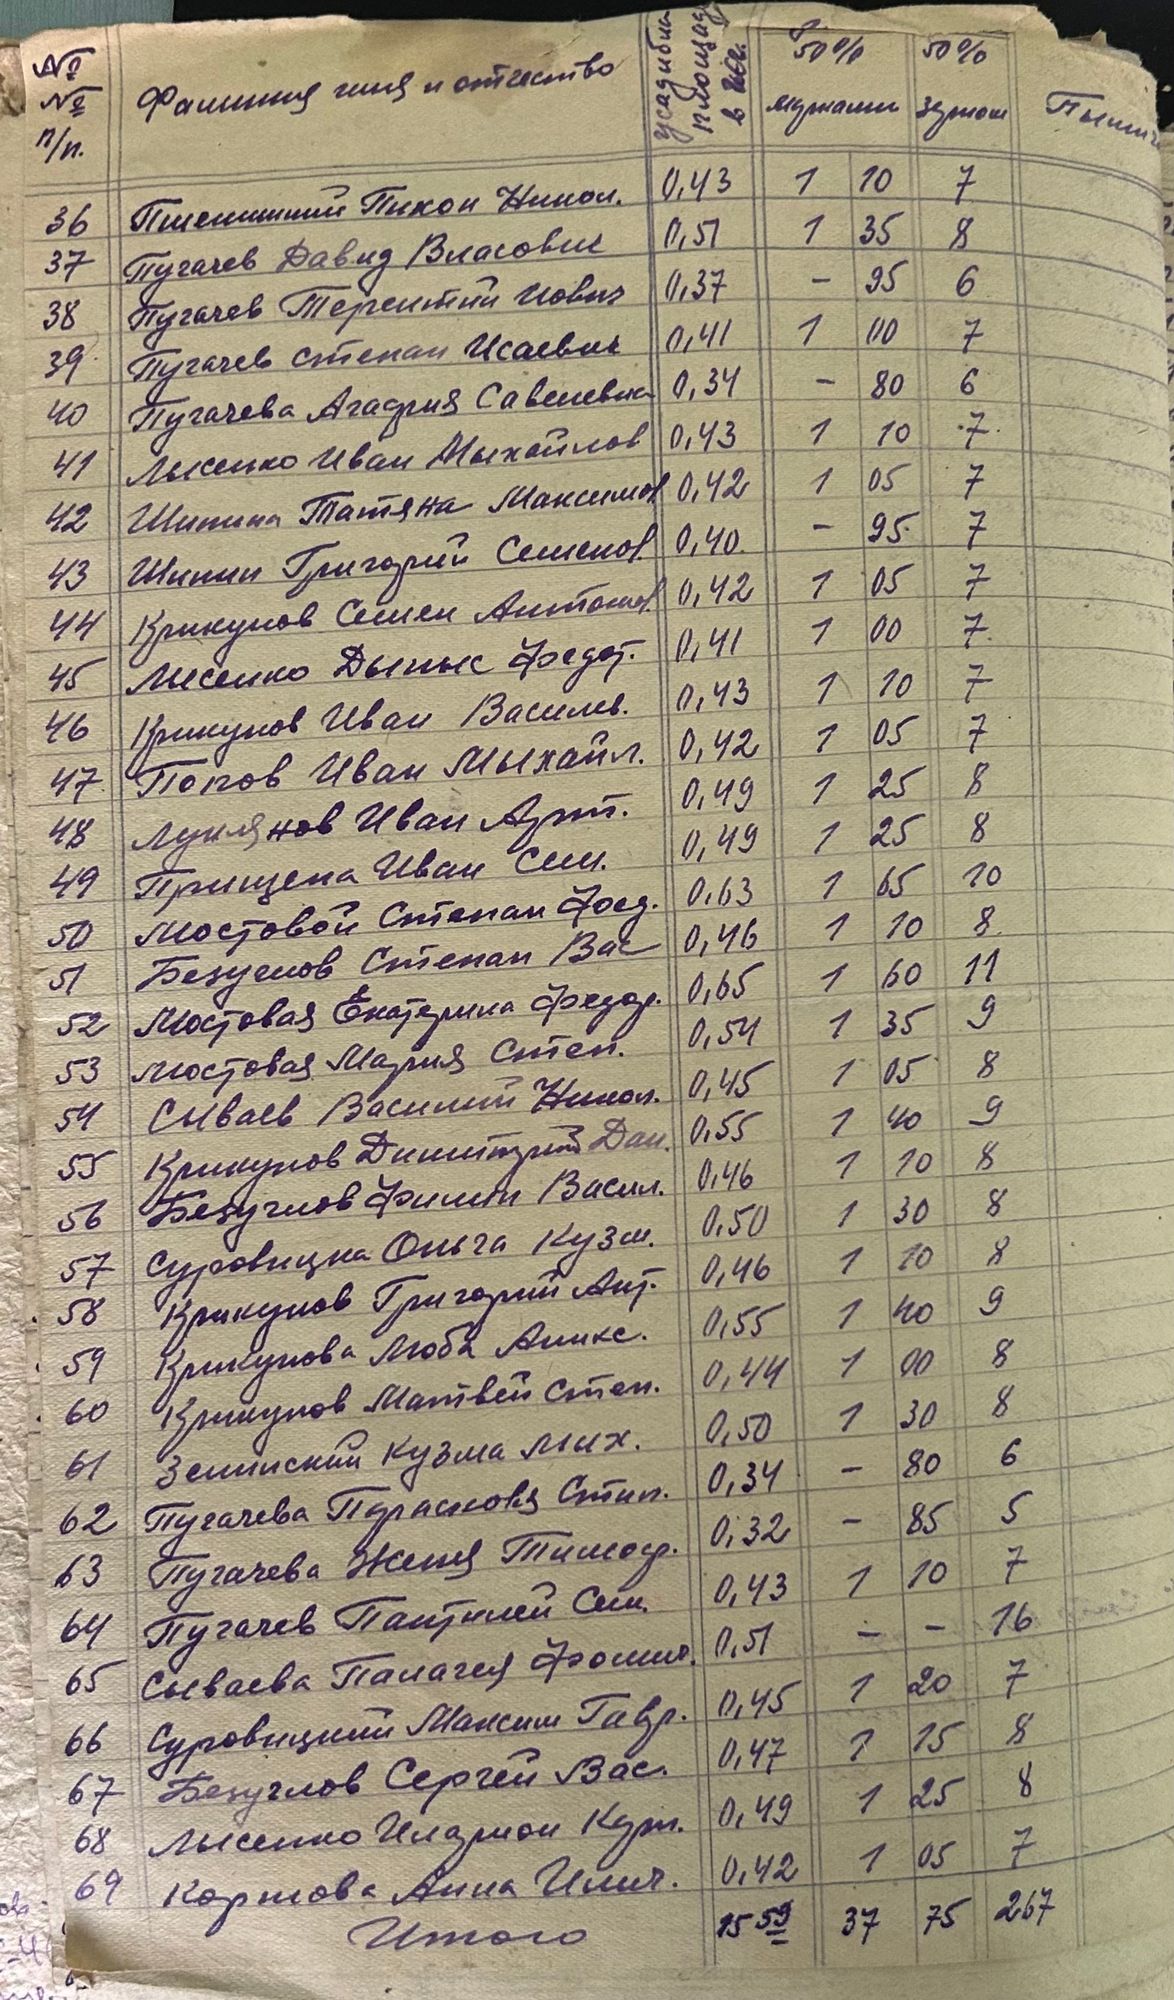 № № п/п. Фамилия имя и отчество усадибна площадь в гект. 50% муками 50% зерном
36 Пшеничний Тихон Никол. 0,43 1 10 7
37 Пугачев Давид Власович 0,51 1 35 8
38 Пугачев Терентий Иович 0,37 – 95 6
39 Пугачев Степан Исаевич 0,41 1 00 7
40 Пугачева Агафия Савелевна 0,34 – 80 6
41 Лысенко Иван Мыхайлов 0,43 1 10 7
42 Шипина Татяна Максимов 0,42 1 05 7
43 Шипин Григорий Семенов 0,40 – 95 7
44 Крикунов Семен Антонов 0,42 1 05 7
45 Лисенко Дыныс Федот. 0,41 1 00 7
46 Крикунов Иван Василев. 0,43 1 10 7
47 Попов Иван Мыхайл. 0,42 1 05 7
48 Лукянов Иван Арт. 0,49 1 25 8
49 Прищепа Иван Сем. 0,49 1 25 8
50 Мостовой Степан Фед. 0,63 1 65 10
51 Безуглов Степан Вас 0,46 1 10 8
52 Мостовая Екатерина Федор. 0,65 1 60 11
53 Мостовая Мария Степ. 0,54 1 35 9
54 Сываев Василий Никол. 0,45 1 05 8
55 Крикунов Димитрий Дан. 0,55 1 40 9
56 Безуглов Филип Васил. 0,46 1 10 8
57 Суровицка Ольга Кузм. 0,50 1 30 8
58 Крикунов Григорий Ант. 0,46 1 10 8
59 Крикунова Люба Аликс. 0,55 1 40 9
60 Крикунов Матвей Степ. 0,44 1 00 8
61 Зелинский Кузма Мих. 0,50 1 30 8
62 Пугачева Парасковя Стип. 0,34 – 80 6
63 Пугачева Женя Тимоф. 0,32 – 85 5
64 Пугачев Пантилей Сем. 0,43 1 10 7
65 Сываева Палагея Фомич. 0,51 – – 16
66 Суровицкий Максим Гавр. 0,45 1 20 7
67 Безуглов Сергей Вас. 0,47 1 15 8
68 Лысенко Иларион Кур. 0,49 1 25 8
69 Карпова Анна Илич. 0,42 1 05 7
Итого 15 59 37 75 267